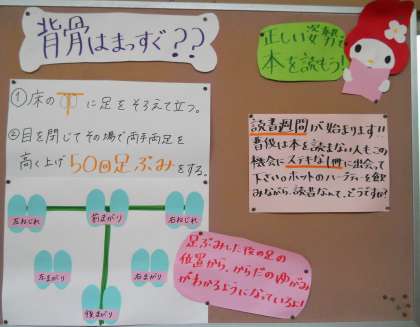 背骨はまっすぐ??
正しい姿勢で
本を読もう!
①床の
に足をそろえて立つ。
②目を閉じてその場で両手両足を
高く上げ50回足ぶみをする。
読書週間が始まります!!
普段は本を読まない人もこの
機会にステキな1冊に出会って
下さい。ホットのハーブティーを飲
みながら、読書なんて、どうですか?
左ねじれ
前まがり
右ねじれ
左まがり
右まがり
後まがり
足ぶみした後の足の
位置から、からだのゆがみ
がわかるようになっているよ!